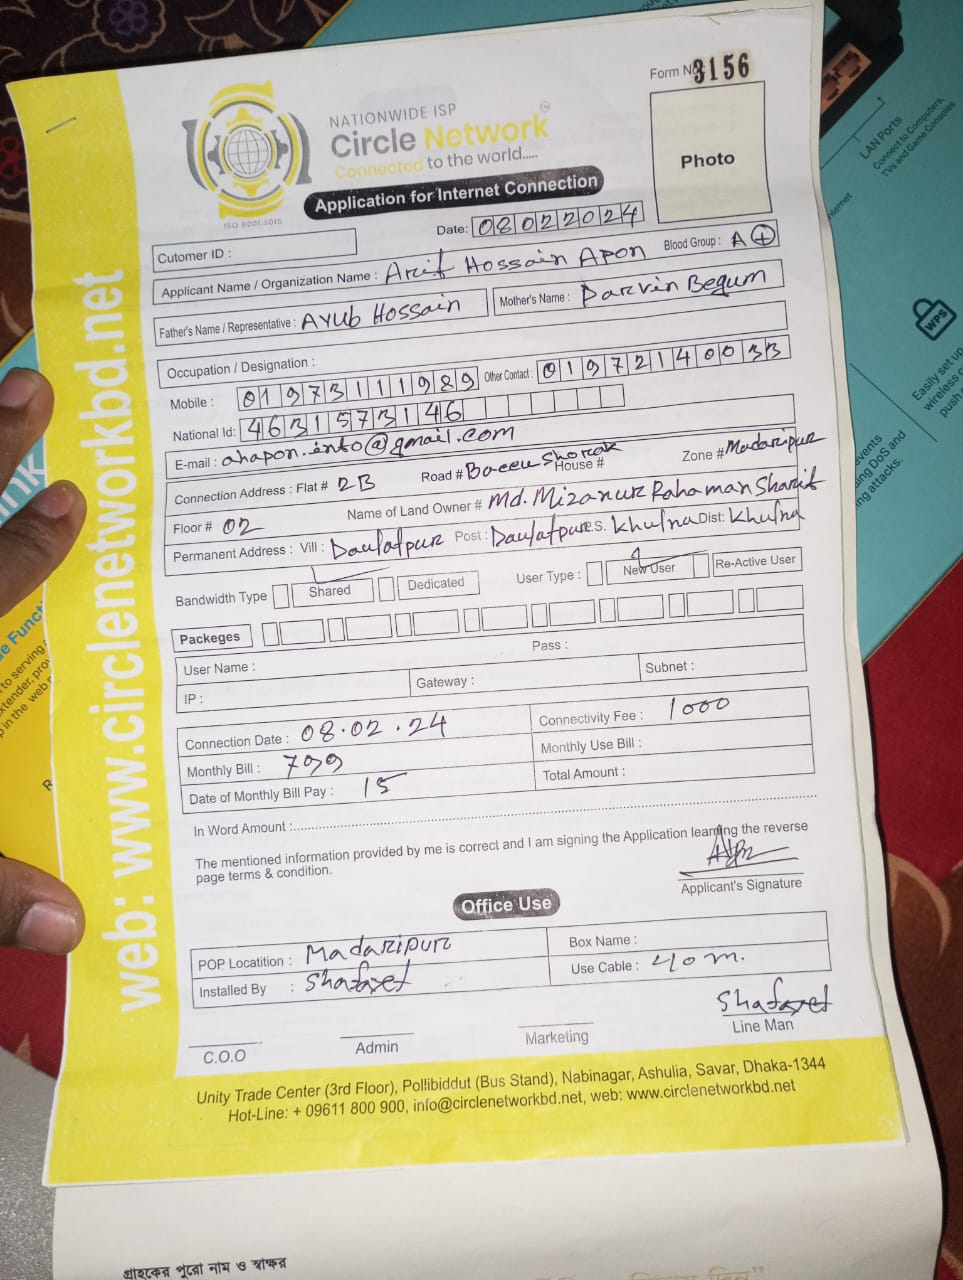 Form No: 3156
NATIONWIDE ISP
Circle Network
Connected to the world.....
ISO 9001:2015
Photo
Application for Internet Connection
Date: 08022024
Cutomer ID :
Applicant Name / Organization Name : Arif Hossain Apon Blood Group : A+
Father's Name / Representative : Ayub Hossain Mother's Name : Parvin Begum
Occupation / Designation :
Mobile : 01973111989 Other Contact : 01972140033
National Id: 4631573146
E-mail : ahapon.info@gmail.com
Connection Address : Flat # 2B Road # House # Zone # Madaripur
Floor # 02 Name of Land Owner # Md. Mizanur Rahaman Sharif
Permanent Address : Vill : Daulatpur Post : Daulatpur P.S. Khulna Dist: Khulna
Bandwidth Type Shared Dedicated User Type : New User Re-Active User
Packeges
User Name : Pass :
IP : Gateway : Subnet :
Connection Date : 08.02.24 Connectivity Fee : 1000
Monthly Bill : 799 Monthly Use Bill :
Date of Monthly Bill Pay : 15 Total Amount :
In Word Amount :
The mentioned information provided by me is correct and I am signing the Application learning the reverse
page terms & condition.
Applicant's Signature
Office Use
POP Locatition : Madaripur Box Name :
Installed By : Shafayet Use Cable : 40 m.
Shafayet
C.O.O Admin Marketing Line Man
Unity Trade Center (3rd Floor), Pollibiddut (Bus Stand), Nabinagar, Ashulia, Savar, Dhaka-1344
Hot-Line: + 09611 800 900, info@circlenetworkbd.net, web: www.circlenetworkbd.net
web: www.circlenetworkbd.net
গ্রাহকের পুরো নাম ও স্বাক্ষর
LAN Ports
Connect to Computers,
TVs and Game Consoles
WPS
Easily set up
wireless
push